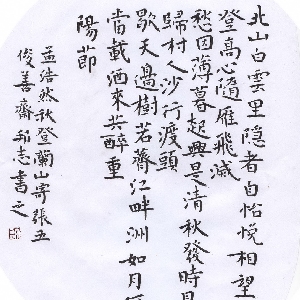 北山白雲里隐者自怡悅相望
登高心隨雁飛滅
愁因薄暮起興是清秋發時見
歸村人沙行渡頭
歇天邊樹若薺江畔洲如月
當載酒來共醉重
陽節
孟浩然秋登蘭山寄張五
俊善齋志書之